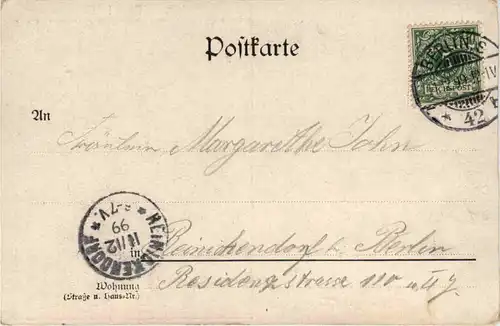 Postkarte
BERLIN S
42
An
Fräulein Margarethe John
REINICKENDORF
11/12
99
6-7V.
in
Reinickendorf b. Berlin
Wohnung
(Straße u. Haus-Nr.)
Residenzstrasse 110